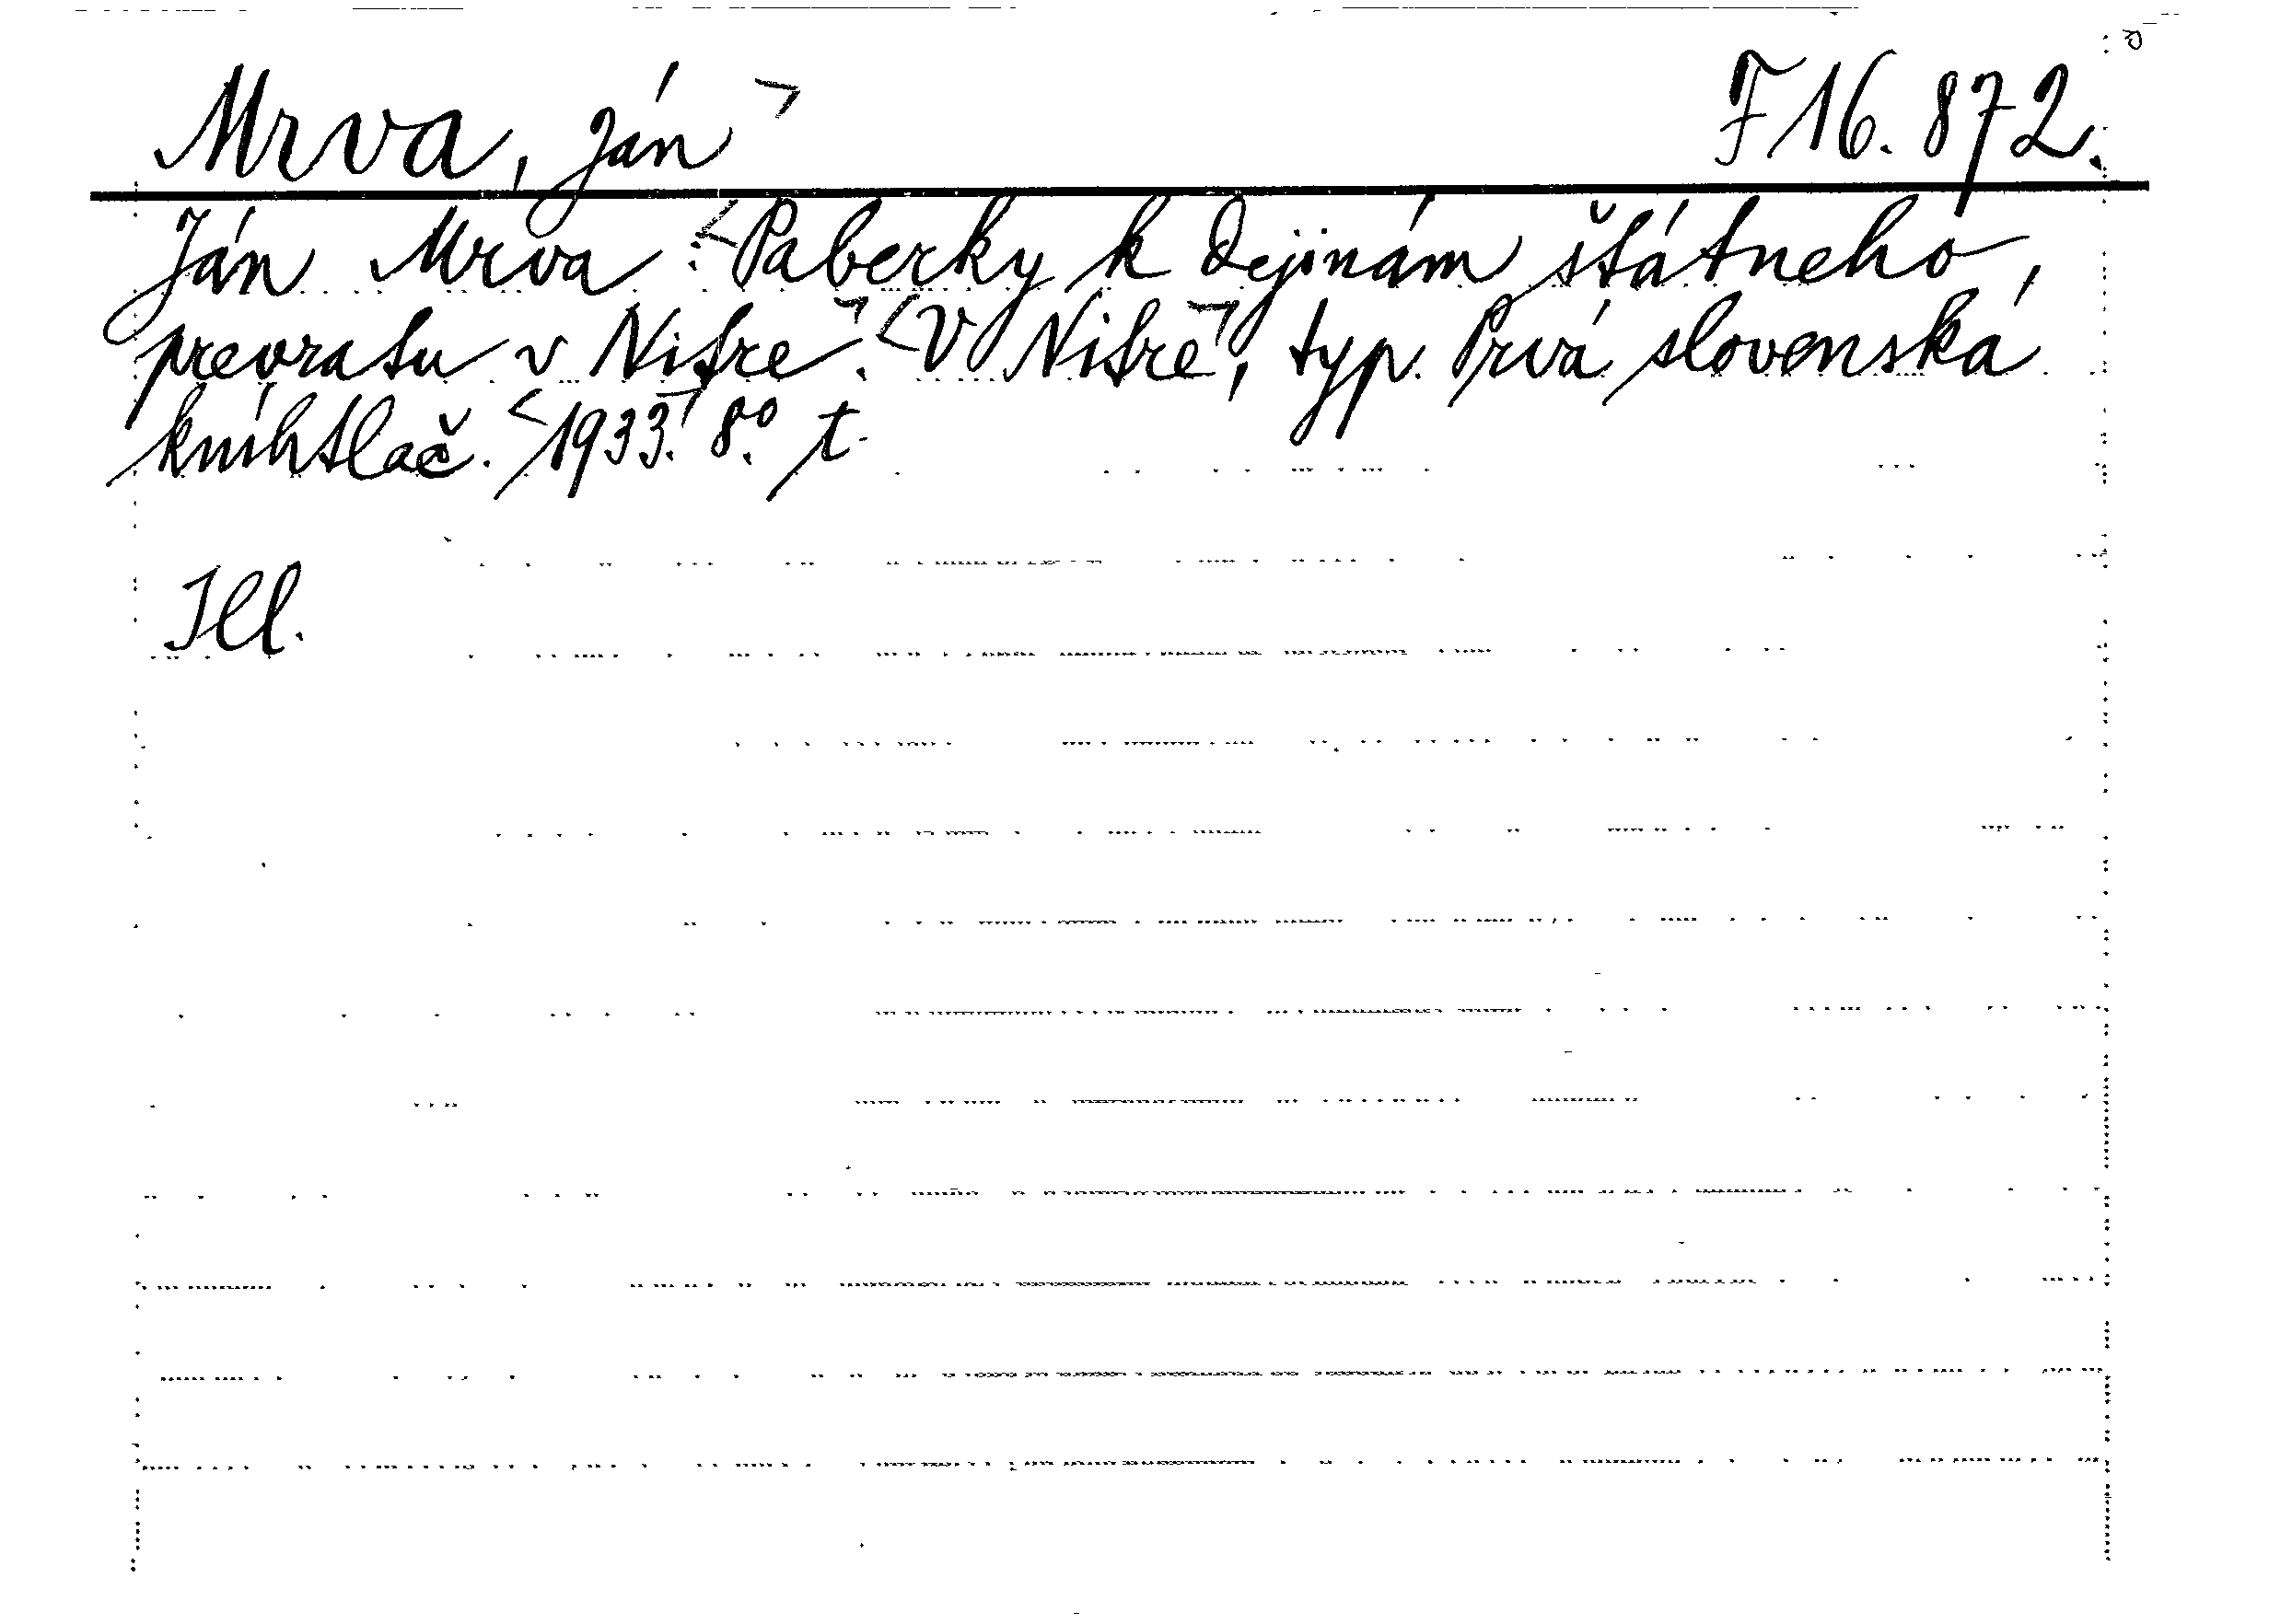 Mrva, Ján F 16.872.
Ján Mrva: Paberky k dejinám štátneho
prevratu v Nitre. V Nitre, typ. Prvá slovenská
kníhtlač. 1933. 8.° t.
Ill.